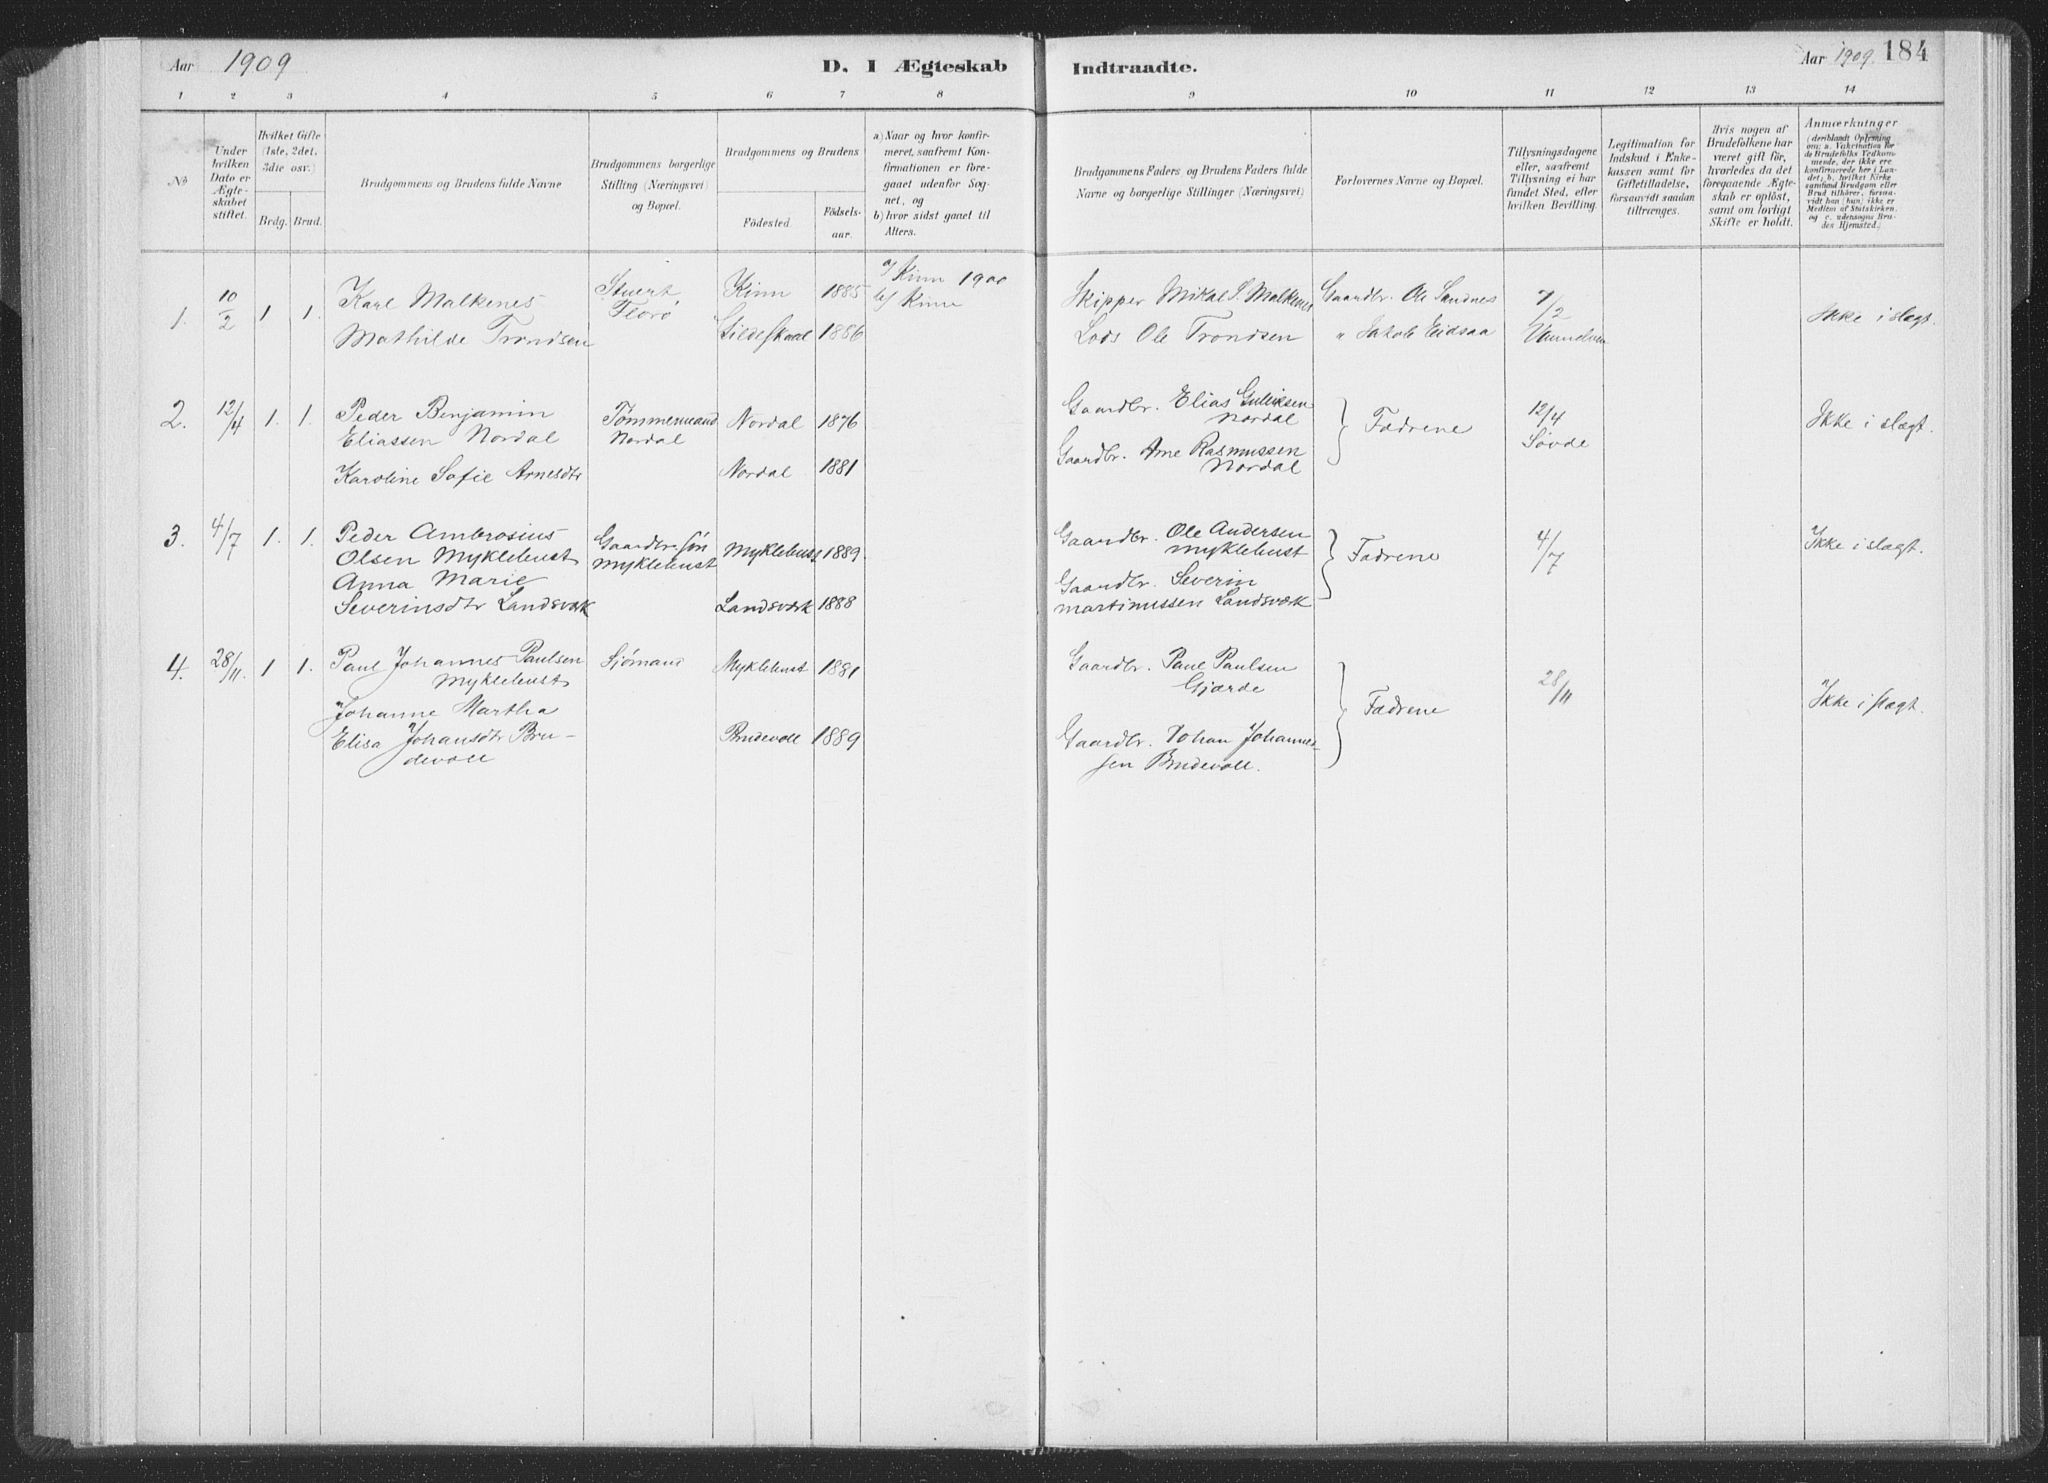 Aar 1909
D. I Ægteskab
Indtraadte.
Aar 1909. 184
1 2 3 4 5 6 7 8
9 10 11 12 13 14
No
Under hvilken Dato er Ægte-skabet stiftet.
Hvilket Gifte (1ste, 2det, 3die osv.)
Brdg. Brud.
Brudgommens og Brudens fulde Navne
Brudgommens borgerlige Stilling (Næringsvei) og Bopæl.
Brudgommens og Brudens
Födested. Födsels-aar.
a) Naar og hvor konfir-meret, saafremt Kon-firmationen er fore-gaaet udenfor Sog-net, og
b) hvor sidst gaaet til Alters.
Brudgommens Faders og Brudens Faders fulde Navne og borgerlige Stillinger (Næringsvei)
Forlovernes Navne og Bopæl.
Tillysningsdagene eller, saafremt Tillysning ei har fundet Sted, efter hvilken Bevilling.
Legitimation for Indskud i Enke-kassen samt for Giftetilladelse, forsaavidt saadan tiltrænges.
Hvis nogen af Brudefolkene har været gift för, hvorledes da det foregaaende Ægte-skab er oplöst, samt om lovligt Skifte er holdt.
Anmærkninger
(deriblandt Oplysning om: a. Vakcination for de Brudefolks Vedkom-mende, der ikke ere konfirmerede her i Lan-det; b. hvilket Kirke-samfund Brudgom eller Brud tilhörer, forsaa-vidt han (hun) ikke er Medlem af Statskirken, og c. udensogns Bru-des Hjemsted.)
1. 10/2 1 1. Karl Malkenes Stuert Florø Kinn 1885 a/ Kinn 1900 b/ Kinn Skipper Mikal S. Malkenes Gaardbr. Ole Sandnes 7/2 Ikke i slægt.
Mathilde Trondsen Gildeskaal 1886 Lods Ole Trondsen " Jakob Eidsaa Vannelven
2. 12/4 1. 1. Peder Benjamin Tømmermand Nordal 1876 Gaardbr. Elias Gulliksen Nordal } Fædrene 12/4 Søvde Ikke i slægt.
Eliassen Nordal Nordal
Karoline Sofie Arnesdtr Nordal 1881 Gaardbr. Arne Rasmussen Nordal
3. 4/7 1. 1. Peder Ambrosius Gaardbr.søn Myklebust 1889. Gaardbr. Ole Andersen Myklebust } Fædrene 4/7 Ikke i slægt.
Olsen Myklebust Myklebust
Anna Marie Gaardbr. Severin
Severinsdtr Landsværk Landsværk 1888 Martinussen Landsværk
4. 28/11. 1 1. Paul Johannes Paulsen Sjømand Myklebust 1881 Gaardbr. Paul Paulsen Gjærde } Fædrene 28/11 Ikke i slægt.
Myklebust
Johanne Martha
Elisa Johansdtr Bru- Brudevoll 1889 Gaardbr. Johan Johannes-
devoll sen Brudevoll.